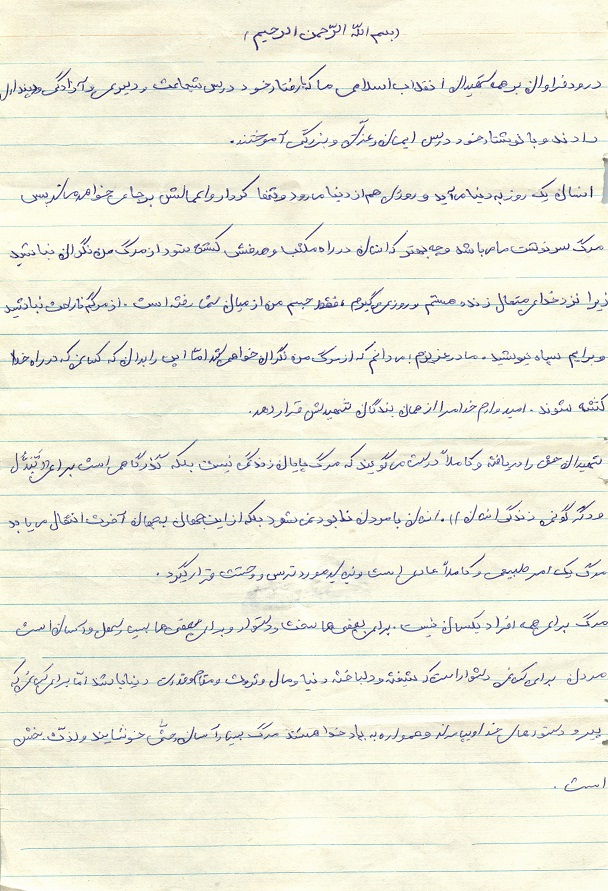 (بسم الله الرّحمن الرحیم)
درود فراوان بر همه شهیدان انقلاب اسلامی ما که با رفتار خود درس شجاعت و دلیری و آزادگی
دادند و با نوشتار خود درس ایمان و عزّت و بزرگی آموختند.
انسان یک روز به دنیا می‌آید و روزی هم از دنیا می‌رود و تنها کردار و اعمالش بر جای خواهد ماند پس
مرگ سرنوشت ما می‌باشد و چه بهتر که انسان در راه مکتب و هدفش کشته شود از مرگ من نگران نباشید
زیرا نزد خدای متعال زنده هستم و روزی می‌گیرم، فقط جسم من از میان شما رفته است. از مرگم ناراحت نباشید
و برایم سیاه نپوشید. مادر عزیزم! می‌دانم که از مرگ من نگران خواهی شد امّا این را بدان که کسانی که در راه خدا
کشته شوند. امیدوارم خدا مرا از همان بندگان شهیدش قرار دهد.
شهیدان حق را دریافته و کاملاً درست می‌گویند که مرگ پایان زندگی نیست بلکه گذرگاهی است برای ((تَبَدُّل
و دگرگونی زندگی انسان)). انسان با مردن نابود نمی‌شود بلکه از این جهان به جهان آخرت انتقال می‌یابد
مرگ یک امر طبیعی و کاملاً عادی است و نباید مورد ترس و وحشت قرار بگیرد.
مرگ برای همه افراد یکسان نیست. برای بعضی‌ها سخت و دشوار و برای بعضی‌ها بسیار سهل و آسان است
مردن برای کسانی دشوار است که شیفته و دلباخته دنیا و مال و ثروت و مقام و قدرت دنیا باشند امّا برای کسانی که
پیرو دستورهای خدا و پیامبرند و همواره به یاد خدا هستند مرگ بسیار آسان و حتّی خوشایند و لذّت بخش
است.